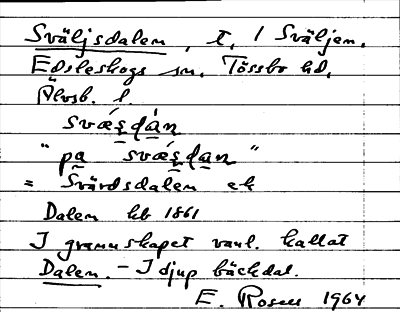 Sväljsdalem, t. / Sväljen.
Edsleskogs sn. Tössbo hd.
Älvsb. l.
svǽs̯dàn
"pa svǽs̯dan"
= Svärdsdalen ek
Dalen hb 1861
I grannskapet vanl. kallat
Dalen. - I djup bäckdal.
E. Rosell 1964